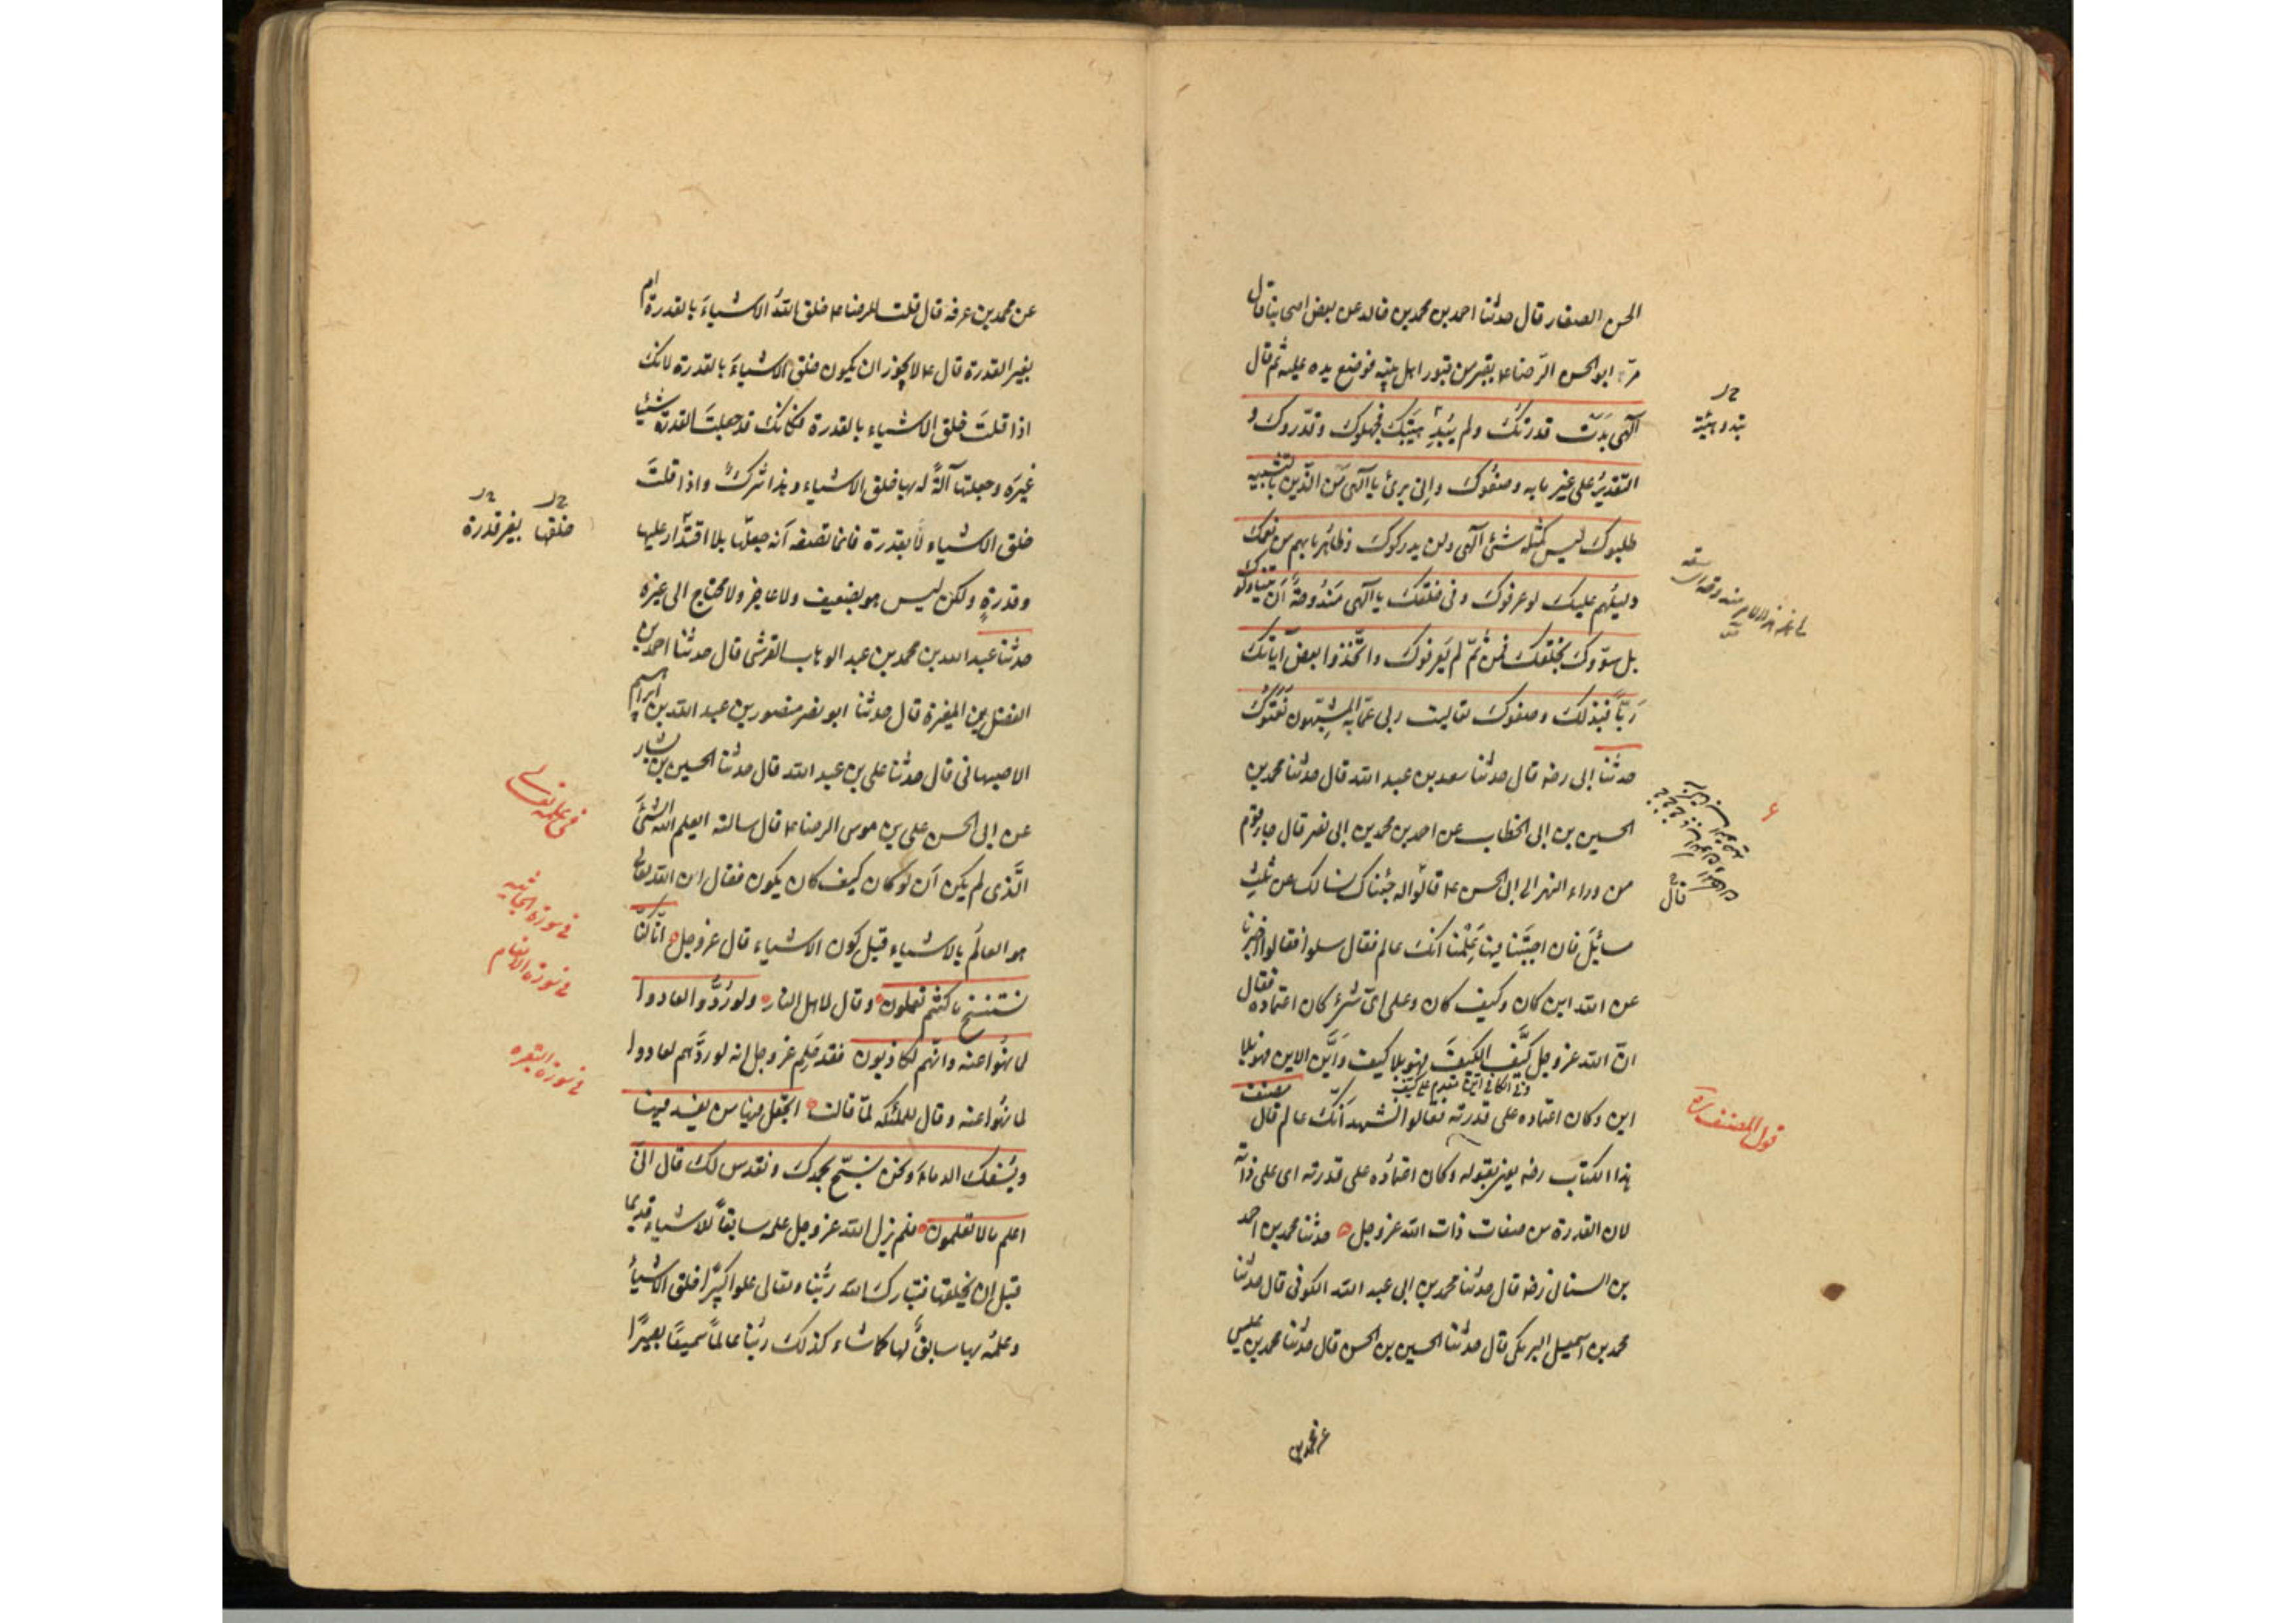 الحسن الصفار قال حدثنا احمد بن محمد بن خالد عن بعض اصحابنا قال
مرّ ابو الحسن الرّضا ع بقبر من قبور اهل بيته فوضع يده عليه ثم قال
الٓهى بَدَت قدرتكَ ولم تَبْدُ هيئتك فجهلوك وقدّروك و
التقديرُ على غير ما به وصفُوك وانى برئ يا الٓهى مِن الذّين بالتشبيه
طلبوك ليس كمثله شئ الٓهى ولن يدركوك وظاهر ما بهم من نعمك
دليلُهم عليك لو عرفوك وفى خلقك يا الٓهى مَندُوحةٌ اَن يتناولوك
بل سوّوك بخلقك فمن ثَمّ لم يَعرفوك واتّخذوا بعض آياتك
رَبّاً فبذلك وصفوك تعاليت ربى عمّا به المشبّهون نَعَتُوك
حدثنا ابى رضه قال حدثنا سعد بن عبد الله قال حدثنا محمد بن
الحسين بن ابى الخطاب عن احمد بن محمد بن ابى نصر قال جاء قوم
من وراء النهر الى ابى الحسن ع فقالوا له جئناك نسالك عن ثلث
مسائل فان اجبتَنا فيها عَلِمْنا انك عالم فقال سلوا فقالوا اخبرنا
عن الله اين كان وكيف كان وعلى اىّ شئ كان اعتماده فقال
انّ الله عز وجل كَيَّفَ الكيفَ فهو بلا كيف وَاَيَّن الاين فهو بلا
اين وكان اعتماده على قدرته فقالوا نشهد اَنّك عالم قال مصنف
هذا الكتاب رضه يعنى بقوله وكان اعتمادُه على قدرته اى على ذاته
لان القدرة من صفات ذات الله عز وجل حدثنا محمد بن احمد
بن السنانى رضه قال حدثنا محمد بن ابى عبد الله الكوفى قال حدثنا
محمد بن اسمعيل البرمكى قال حدثنا الحسين بن الحسن قال حدثنا محمد بن عيسى
عن محمد بن
قول المصنف ره
قال
عن محمد بن عرفه قال قلت للرضا ع خلق اللهُ الاشياءَ بالقدرة ام
بغير القدرة قال ع لا يجوز ان يكون خلق الاشياءَ بالقدرة لانك
اذا قلتَ خلق الاشياء بالقدرة فكانك قد جعلتَ القدرة شيئا
غيرَه وجعلتها آلةً له بها خلق الاشياء وهذا شركٌ واذا قلتَ
خلق الاشياء لا بقدرة فانما تصفه اَنه جعلها بلا اقتدار عليها
وقدرةٍ ولكن ليس هو بضعيف ولا عاجز ولا محتاج الى غيره
حدثنا عبد الله بن محمد بن عبد الوهاب القرشى قال حدثنا احمد بن
الفضل بن المغيرة قال حدثنا ابو نصر منصور بن عبد الله بن ابراهيم
الاصبهانى قال حدثنا على بن عبد الله قال حدثنا الحسين بن بشار
عن ابى الحسن على بن موسى الرضا ع قال سالته ايعلم الله الشئَ
الّذى لم يكن اَن لو كان كيف كان يكون فقال ان الله تعالى
هو العالمُ بالاشياء قبل كون الاشياء قال عز وجل انّا كنّا
نستنسخ ما كنتم تعملون وقال لاهل النار ولو رُدُّوا لعادوا
لما نُهُوا عنه وانّهم لكاذبون فقد عَلِم عز وجل انه لو ردَّهم لعادوا
لما نُهُوا عنه وقال للملئكه لمّا قالت اتجعل فيها من يفسد فيها
ويسفك الدماءَ ونحن نسبّح بحمدك ونقدس لك قال انّى
اعلم ما لا تعلمون فلم يزل الله عز وجل علمه سابقاً للاشياء قديما
قبل ان يخلقها فتبارك الله ربُّنا وتعالى علوا كبيرًا خلق الاشياءَ
وعلمُه بها سابقٌ لها كما شاء كذلك ربُّنا عالماً سميعًا بصيرًا
خلقها بغير قدرة
فى علمه تعالى
فى سورة الجاثيه
فى سورة الانعام
فى سورة البقره